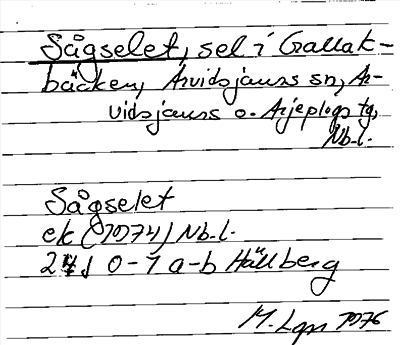 Sågselet, sel i Gallak-
bäcken, Arvidsjaurs sn, Ar-
vidsjaurs o. Arjeplogs tg,
Nb.l.
Sågselet
ek (1974) Nb.l.
24J 0-1 a-b Hällberg
M. Lgn 1976